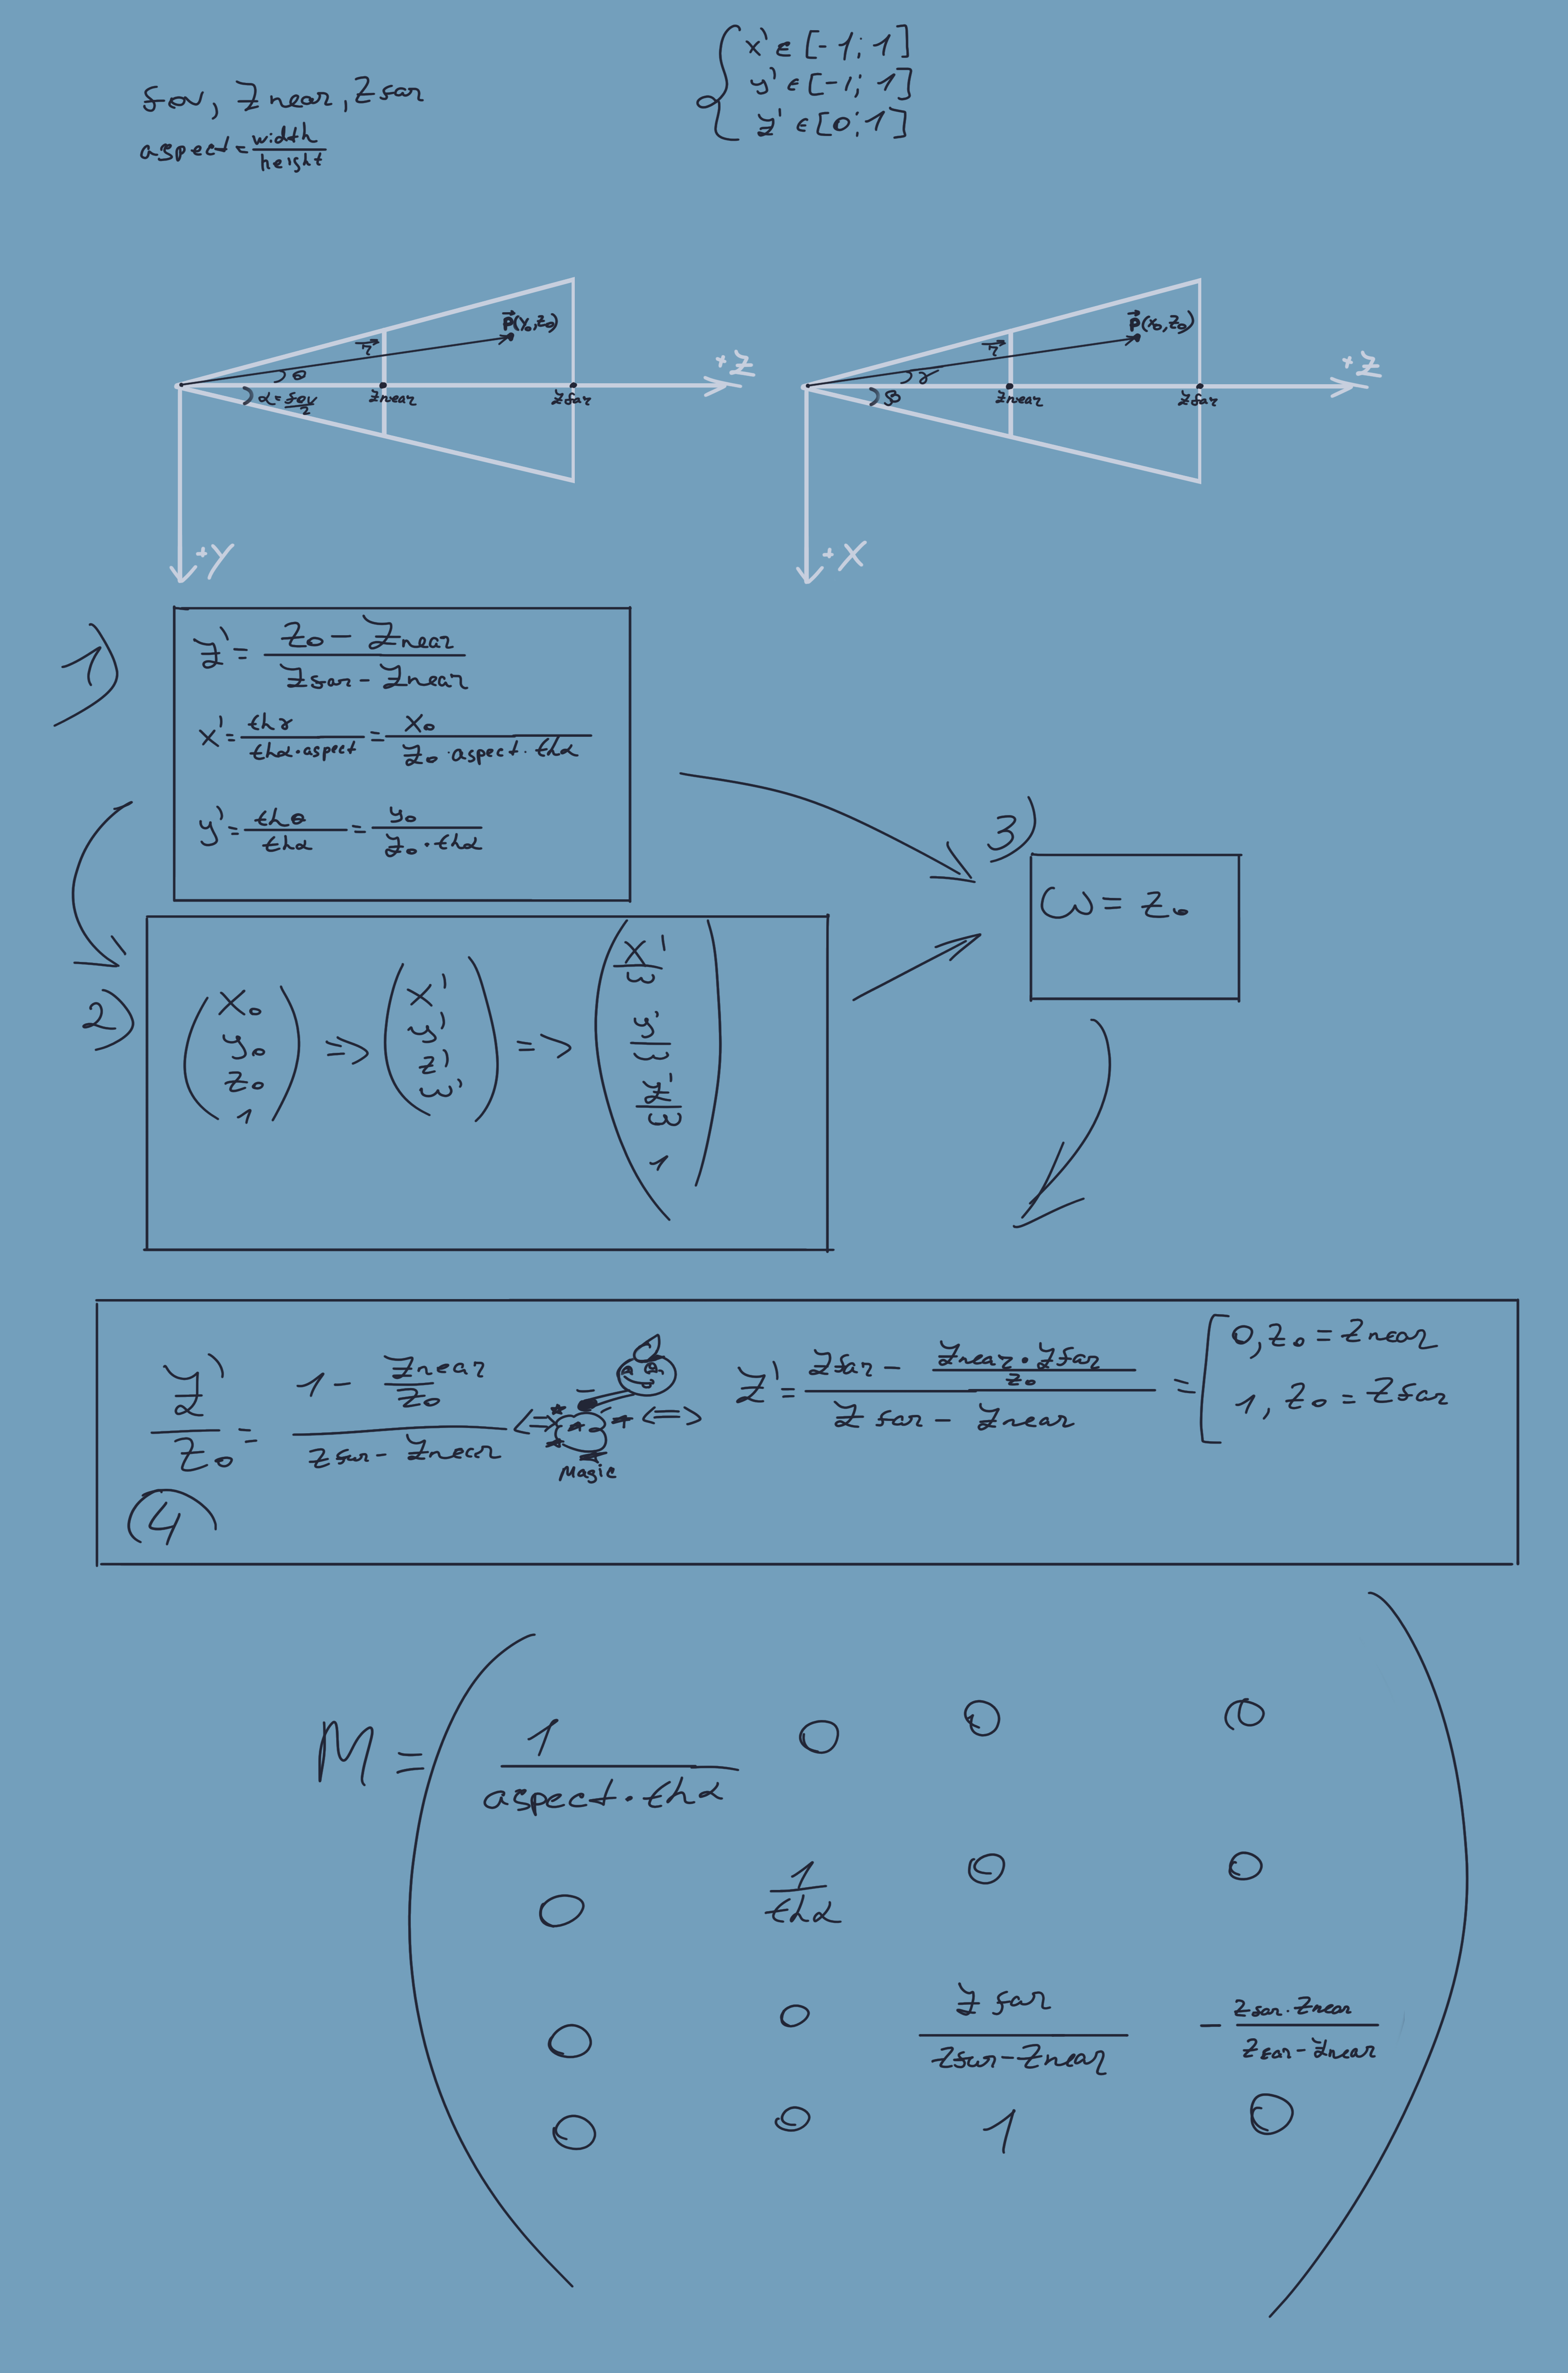 fov, Znear, Zfar
aspect = width/height
{ x' ∈ [-1; 1]
y' ∈ [-1; 1]
z' ∈ [0; 1]
p(y₀, z₀)
r
θ
α = fov/2
Znear
Zfar
+Z
+Y
p(x₀, z₀)
r
γ
β
Znear
Zfar
+Z
+X
1)
z' = (Z₀ - Znear)/(Zfar - Znear)
x' = thγ/(thα·aspect) = x₀/(z₀·aspect·thα)
y' = thθ/thα = y₀/(z₀·thα)
2)
(x₀ y₀ z₀ 1) => (x' y' z' ω') => (x'/ω y'/ω z'/ω 1)
3)
ω = z₀
z'/z₀ = (1 - Znear/z₀)/(Zfar - Znear) <=> Magic <=> z' = (Zfar - (Znear·Zfar)/z₀)/(Zfar - Znear) = [ 0, z₀ = Znear
1, z₀ = Zfar
4
M = ( 1/(aspect·thα) 0 0 0
0 1/thα 0 0
0 0 Zfar/(Zfar - Znear) -(Zfar·Znear)/(Zfar - Znear)
0 0 1 0 )